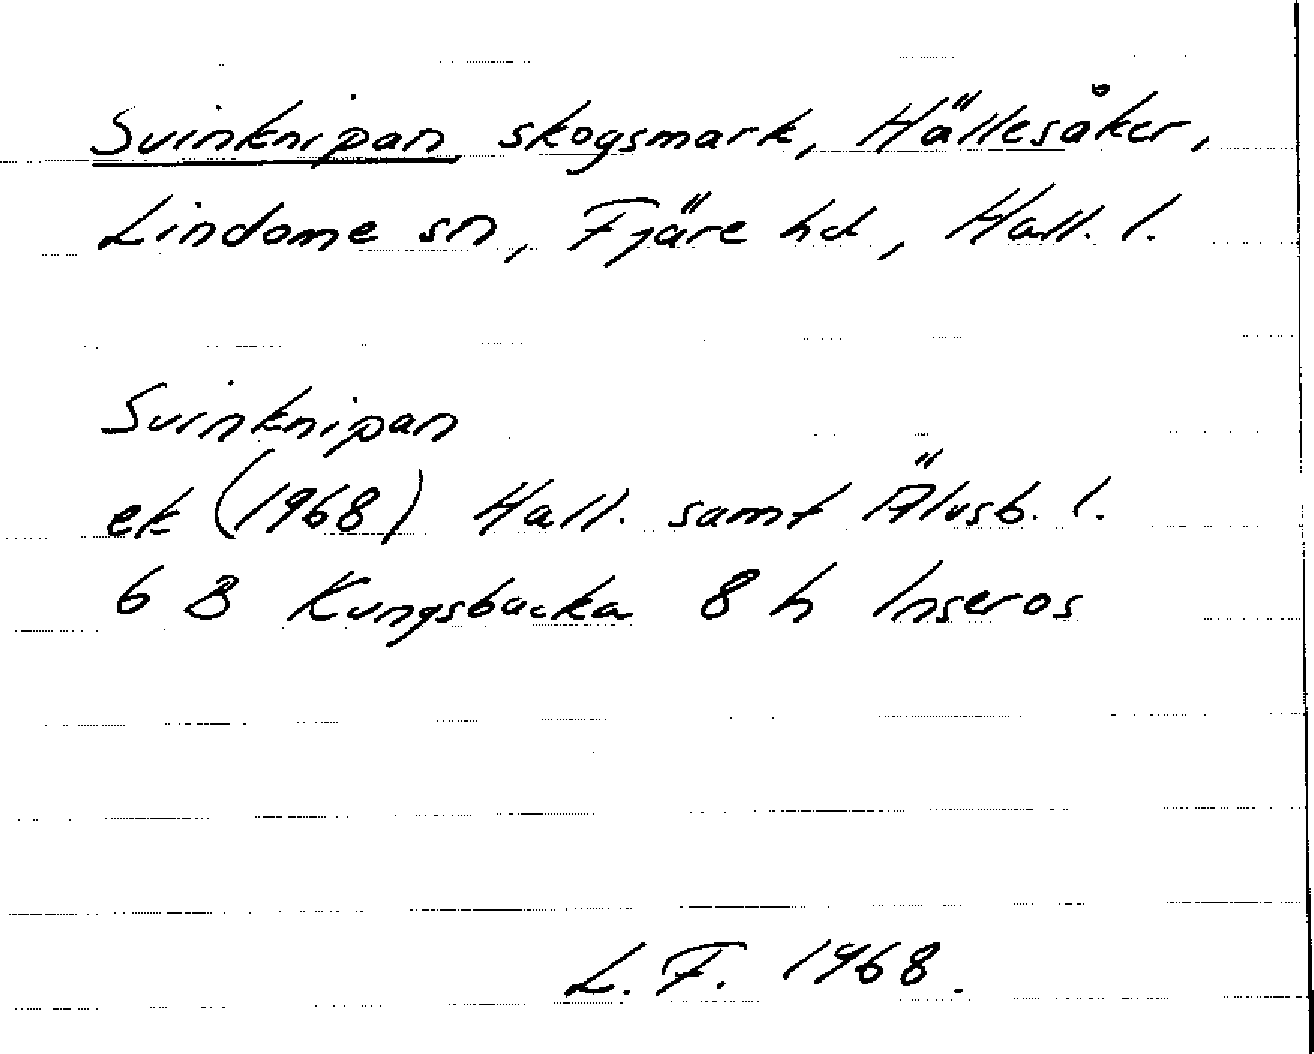 Svinknipan skogsmark, Hällesåker,
Lindome sn, Fjäre hd, Hall. l.
Svinknipan
ek (1968) Hall. samt Älvsb. l.
6 B Kungsbacka 8 h Inseros
L. F. 1968.